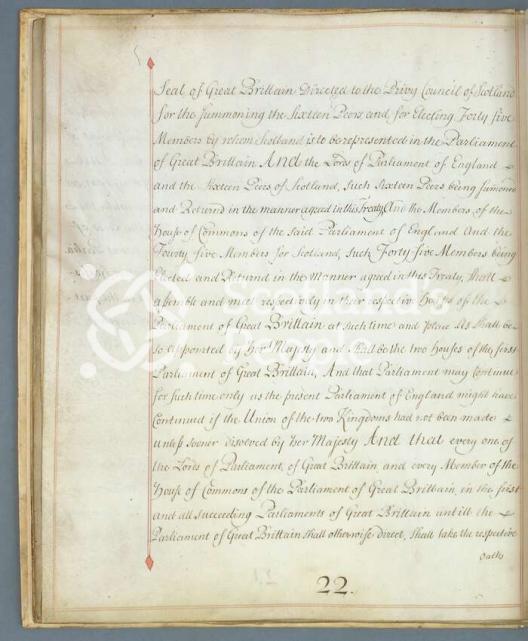 Seal of Great Brittain Directed to the Privy Council of Scotland
for the summoning the Sixteen Peers, and for Electing Forty five
Members by whom Scotland is to be represented in the Parliament
of Great Brittain And the Lords of Parliament of England
and the Sixteen Peers of Scotland, such Sixteen Peers being summoned
and Returnd in the manner agreed in this Treaty, And the Members of the
House of Commons of the said Parliament of England And the
Fourty five Members for Scotland, such Forty-five Members being
Elected and Returnd in the Manner agreed in this Treaty, shall
assemble and meet respectively in their respective houses of the
Parliament of Great Brittain at such time and place As shall be
so appointed by her Majesty and shall be the two houses of the first
Parliament of Great Brittain, And that Parliament may Continue
for such time only as the present Parliament of England might have
Continued if the Union of the two Kingdoms had not been made
unless sooner disolved by her Majesty And that every one of
the Lords of Parliament of Great Brittain and every Member of the
House of Commons of the Parliament of Great Brittain in the first
and all succeeding Parliaments of Great Brittain untill the
Parliament of Great Brittain shall otherwise direct, shall take the respective
Oaths
22.
Scotland's
People